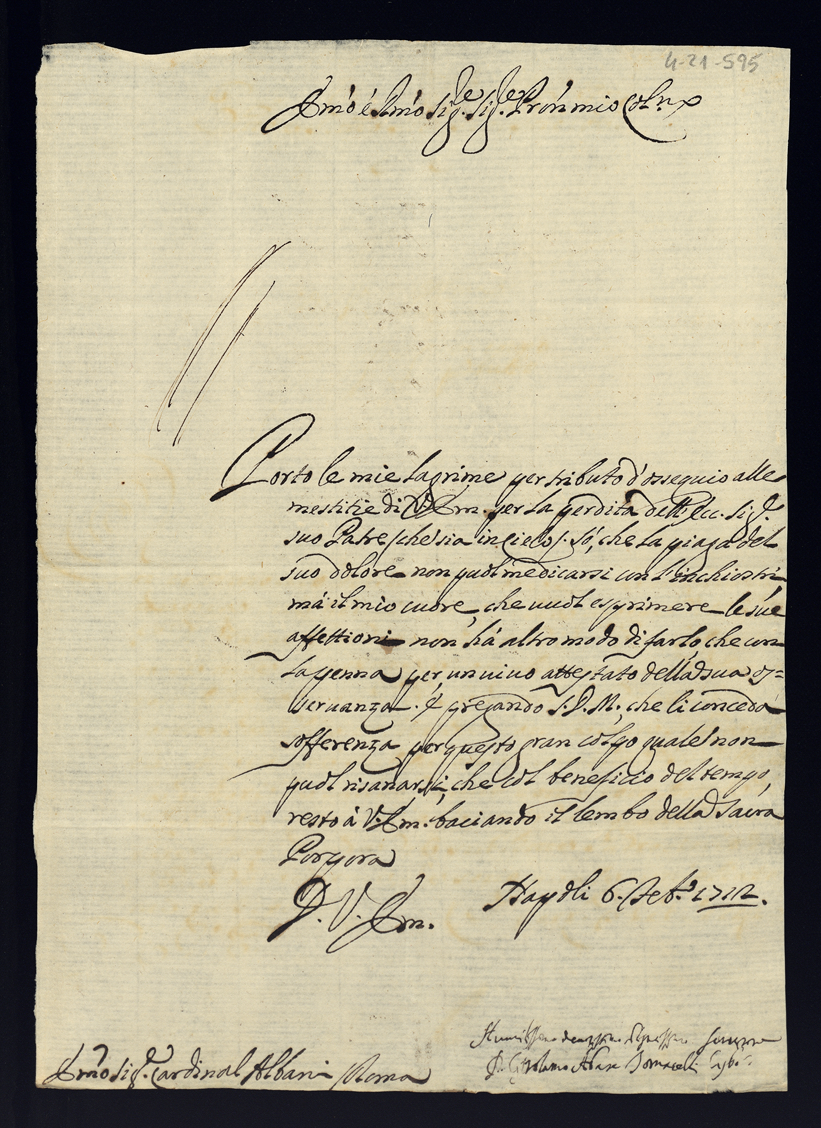 4-21-595
Em̃o é Rm̃o Sig.re Sig.re Prõn mio Col.mo
Porto le mie lagrime per tributo d'ossequio alle
mestitie di V. Em. per la perdita dell'Ecc. Sig.r
suo Patre (che sia in Cielo): só, che la piaga del
suo dolore non puol medicarsi con l'inchiostri
má il mio cuore, che vuol esprimere le sue
affettioni non há altro modo di farlo, che con
la penna per un vivo attestato della sua os=
servanza. é pregando S. D. M., che li conceda
sofferenza per questo gran colpo quale non
puol risanarsi, che col beneficio del tempo,
resto á V. Em. baciando il lembo della Sacra
Porpora
D. V. Em. Napoli 6. Feb.o 1712.
Em̃o Sig.r Cardinal Albani Roma
D. Girolamo Tomacelli